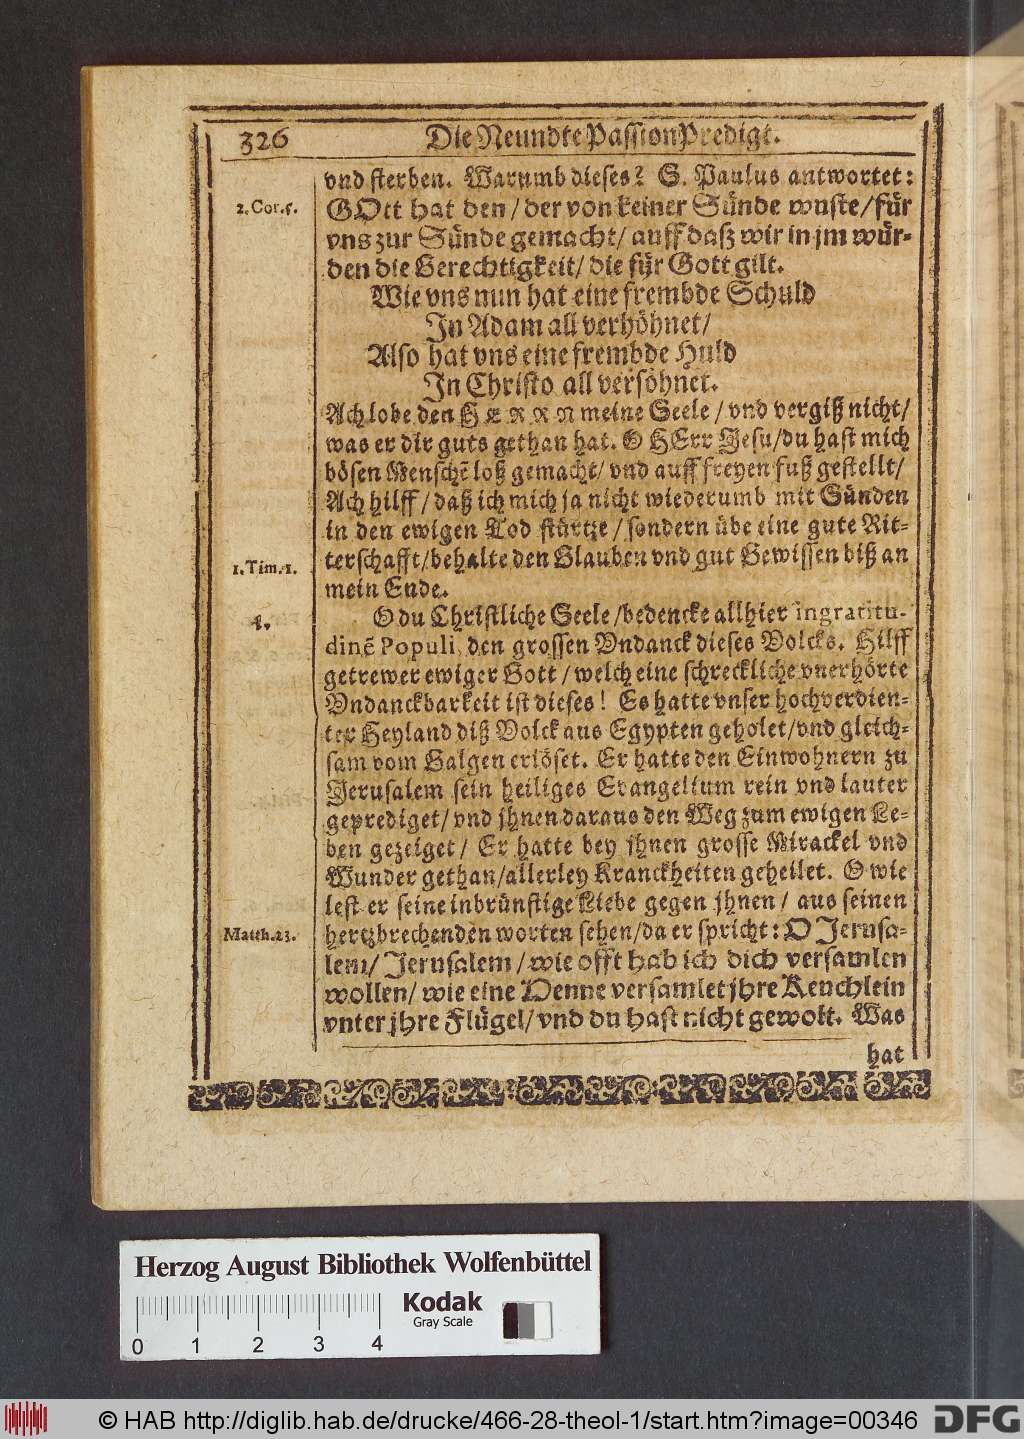 326
Die Neundte PassionPredigt.
vnd sterben. Warumb dieses? S. Paulus antwortet:
2. Cor. 5.
GOtt hat den / der von keiner Sünde wuste / für
vns zur Sünde gemacht / auff daß wir in jm wür-
den die Gerechtigkeit / die für Gott gilt.
Wie vns nun hat eine frembde Schuld
In Adam all verhöhnet /
Also hat vns eine frembde Huld
In Christo all versöhnet.
Ach lobe den HERRN meine Seele / vnd vergiß nicht /
was er dir guts gethan hat. O HErr Jesu / du hast mich
bösen Menschē loß gemacht / vnd auff freyen fuß gestellt /
Ach hilff / daß ich mich ja nicht wiederumb mit Sünden
in den ewigen Tod stürtze / sondern übe eine gute Rit-
terschafft / behalte den Glauben vnd gut Gewissen biß an
1. Tim. 1.
mein Ende.
4.
O du Christliche Seele / bedencke allhier ingratitu-
dinē Populi, den grossen Vndanck dieses Volcks. Hilff
getrewer ewiger Gott / welch eine schreckliche vnerhörte
Vndanckbarkeit ist dieses! Es hatte vnser hochverdien-
ter Heyland diß Volck aus Egypten geholet / vnd gleich-
sam vom Galgen erlöset. Er hatte den Einwohnern zu
Jerusalem sein heiliges Evangelium rein vnd lauter
geprediget / vnd jhnen daraus den Weg zum ewigen Le-
ben gezeiget / Er hatte bey jhnen grosse Mirackel vnd
Wunder gethan / allerley Kranckheiten geheilet. O wie
lest er seine inbrünstige Liebe gegen jhnen / aus seinen
Matth. 23.
hertzbrechenden worten sehen / da er spricht: O Jerusa-
lem / Jerusalem / wie offt hab ich dich versamlen
wollen / wie eine Henne versamlet jhre Keuchlein
vnter jhre Flügel / vnd du hast nicht gewolt. Was
hat
Herzog August Bibliothek Wolfenbüttel
Kodak
Gray Scale
0 1 2 3 4
© HAB http://diglib.hab.de/drucke/466-28-theol-1/start.htm?image=00346
DFG